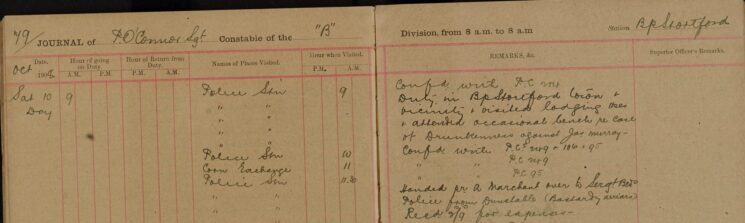 79/ JOURNAL of P. O'Connor Sgt Constable of the "B" Division, from 8 a.m. to 8 a.m Station BpStortford
Date. Hour of going on Duty. Hour of Return from Duty. Names of Places Visited. Hour when Visited. REMARKS, &c. Superior Officer's Remarks.
Oct 190 A.M. P.M. A.M. P.M. P.M. A.M.
Sat 10 9 Police Stn 9 Confd with P.C.
Day " " Duty in BpStortford town &
" " vicinity & visited lodging
" " & attended occasional bench re case
" " of Drunkenness against Jas Murray -
Police Stn 10 Confd with P.C.s 249 & 186 & 95
Corn Exchange 11 " " P.C 249
Police Stn 11.30 P.C 95
" " Handed pr A Marchant over to Sergt
" " Police from Dunstable (Bastardy arrears)
Recd for expenses -